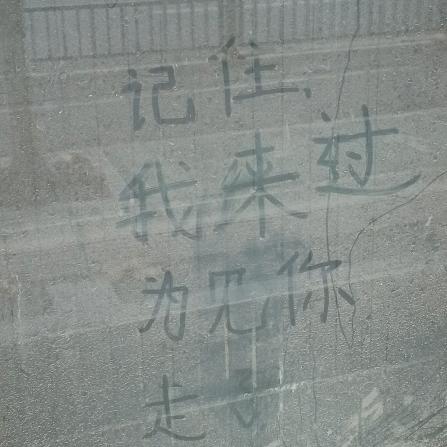 记住,
我来过
为见你
走了